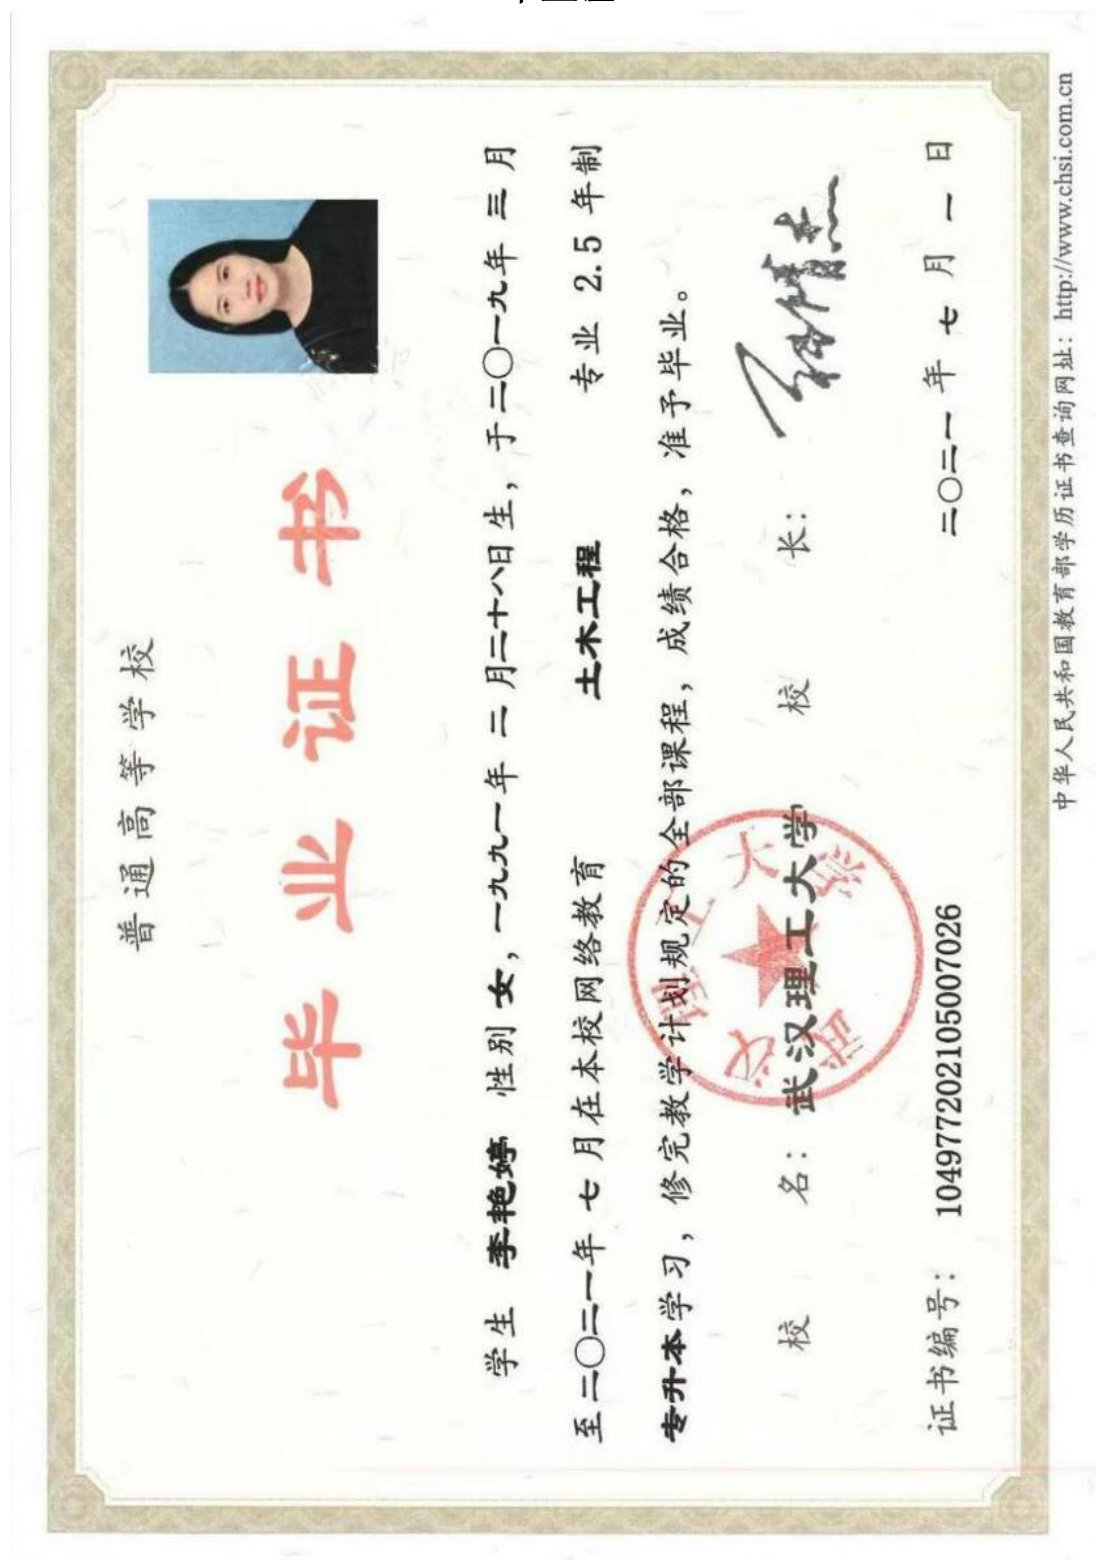 普通高等学校
毕业证书
学生 李艳婷 性别 女，一九九一年 二 月二十八日生，于二〇一九年 三 月
至二〇二一年 七 月在本校网络教育 土木工程 专业 2.5 年制
专升本学习，修完教学计划规定的全部课程，成绩合格，准予毕业。
校 名：武汉理工大学 校 长：
武汉理工大学
证书编号：104977202105007026 二〇二一 年 七 月 一 日
中华人民共和国教育部学历证书查询网址：http://www.chsi.com.cn